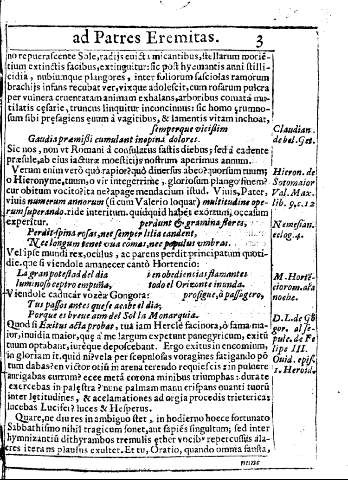 ad Patres Eremitas. 3
no repuerascente Sole, radijs euictis micantibus, stellarum morien-
tium extinctis facibus, extinguitur: sic post hyemantis anni stilli-
cidia, nubiumque plangores, inter foliorum fasciolas ramorum
brachijs infans recubat ver, vixque adolescit, cum rosarum pulcra
per vulnera cruentatam animam exhalans, arboribus comata mu-
tilatis cesarie, truncus linquitur inconcinnus: sic homo ærumno-
sum sibi præsagiens æuum à vagitibus, & lamentis vitam inchoat,
semperque vicissim
Gaudia præmissi cumulant inopina dolores.
Claudian.
de bel. Get.
Sic nos, non vt Romani à consulatus fastis diebus; sed à cadente
præsule, ab eius iactura moestitijs nostrum aperimus annum.
Verum enim verò quò rapior? quò diuersus abeo? quorsum tuum,
o Hieronyme, tuum, o vir integerrime, gloriosum plango finem?
cur obitum vocito? ita ne? apage mendacium istud. Viuis, Pater,
viuis numerum annorum (si cum Valerio loquar) multitudine ope-
rum superando. ride interitum. quidquid habet exortum, occasum
expersitur.
Hieron. de
Sotomaior
Val. Max.
lib. 9, c. 12
perdunt & gramina flores,
Perdit spina rosas, nec semper lilia candent,
Nec longum tenet vua comas, nec populus vmbras.
Nemesian.
eclog. 4.
Vel ipse mundi rex, oculus, ac parens perdit principatum quoti-
die. que si viendole amanecer cantò Hortencio:
La gran potestad del dia
i en obediencias flamantes
luminoso ceptro empuña,
todo el Orizonte inunda.
M. Horté-
cio rom. a la
noche.
Viendole caducar vozèa Gongora:
prosigue, ò passagero,
Tus passos antes que se acabe el dia;
Porque es breue aun del Sol la Monarquia.
D. L. de Gó
gor. al se-
pulc. de Fe
lipe III.
Quod si Exitus acta probat, tua iam Herclè facinora, ò fama ma-
ior, inuidia maior, quæ me largum expetunt panegyricum, exitũ
tuum optabant, iureque deposcebant. Ergo exitus in encomium,
Ouid. epist.
1. Heroid.
in gloriam it. quid ni? vela per scopulosos voragines fatigando põ
tum dabas? en victor otiũ in arena terendo requiescis: in puluere
aurigabas currum? ecce metã corona minibus triumphas: durate
exercebas in palestra? nunc palmam manu crispans ouanti tuorũ
inter letitudines, & acclamationes ad orgia procedis trietericas
lucebas Lucifer? luces & Hesperus.
Quare, ne diu res in ambiguo stet, in hodierno hocce fortunato
Sabbathismo nihil tragicum sonet, aut sapiẽs singultum; sed inter
hymnizantiũ dithyrambos tremulis æther vocibus repercussus ala-
cres iteram plausus exultet. Et tu, Oratio, quando omnia fausta,
nunc